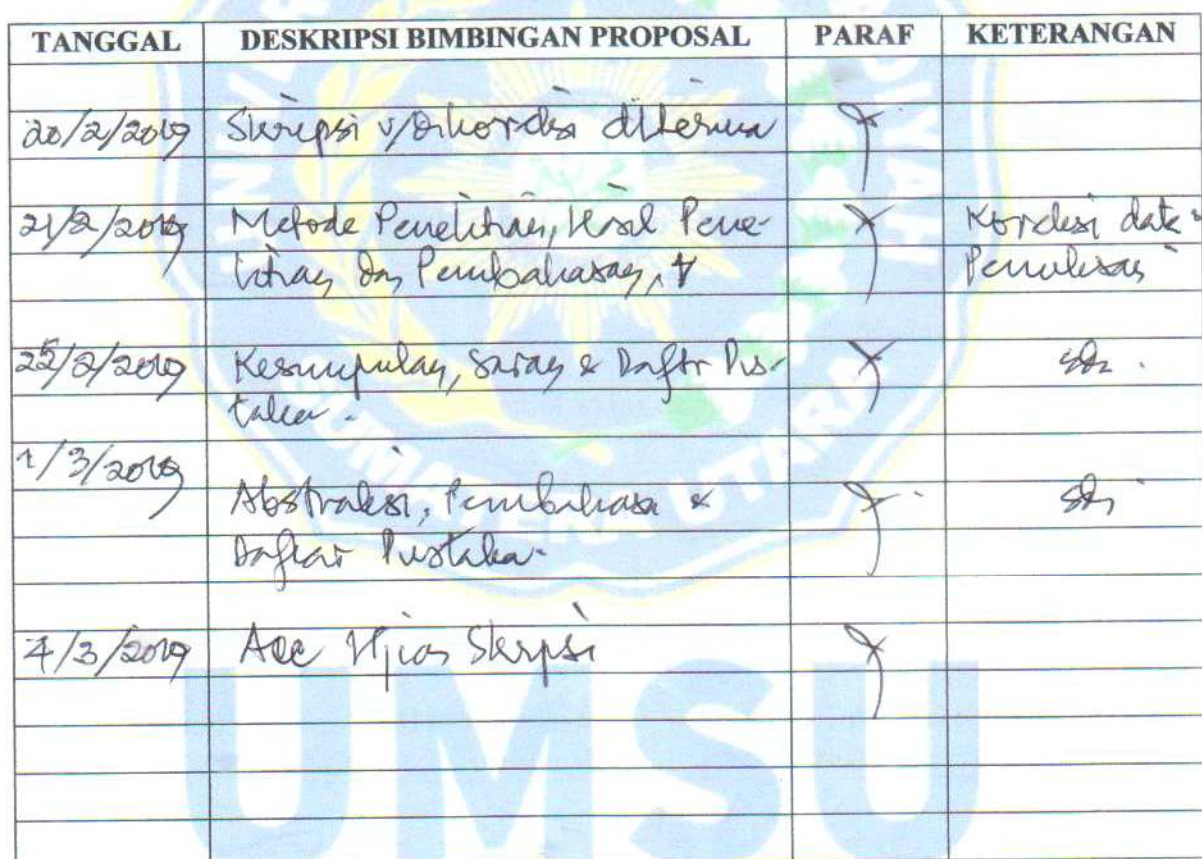 TANGGAL DESKRIPSI BIMBINGAN PROPOSAL PARAF KETERANGAN
20/2/2019 Skripsi u/Dikoreksi diterima
21/2/2019 Metode Penelitian, Hasil Pene- Koreksi data &
litian dan Pembahasan, Penulisan
25/2/2019 Kesimpulan, Saran & Daftr Pus- sda.
taka.
1/3/2019
Abstraksi, Pembahasa & sda
Daftar Pustaka.
4/3/2019 Acc Ujian Skripsi
UMSU
SUMATERA UTARA